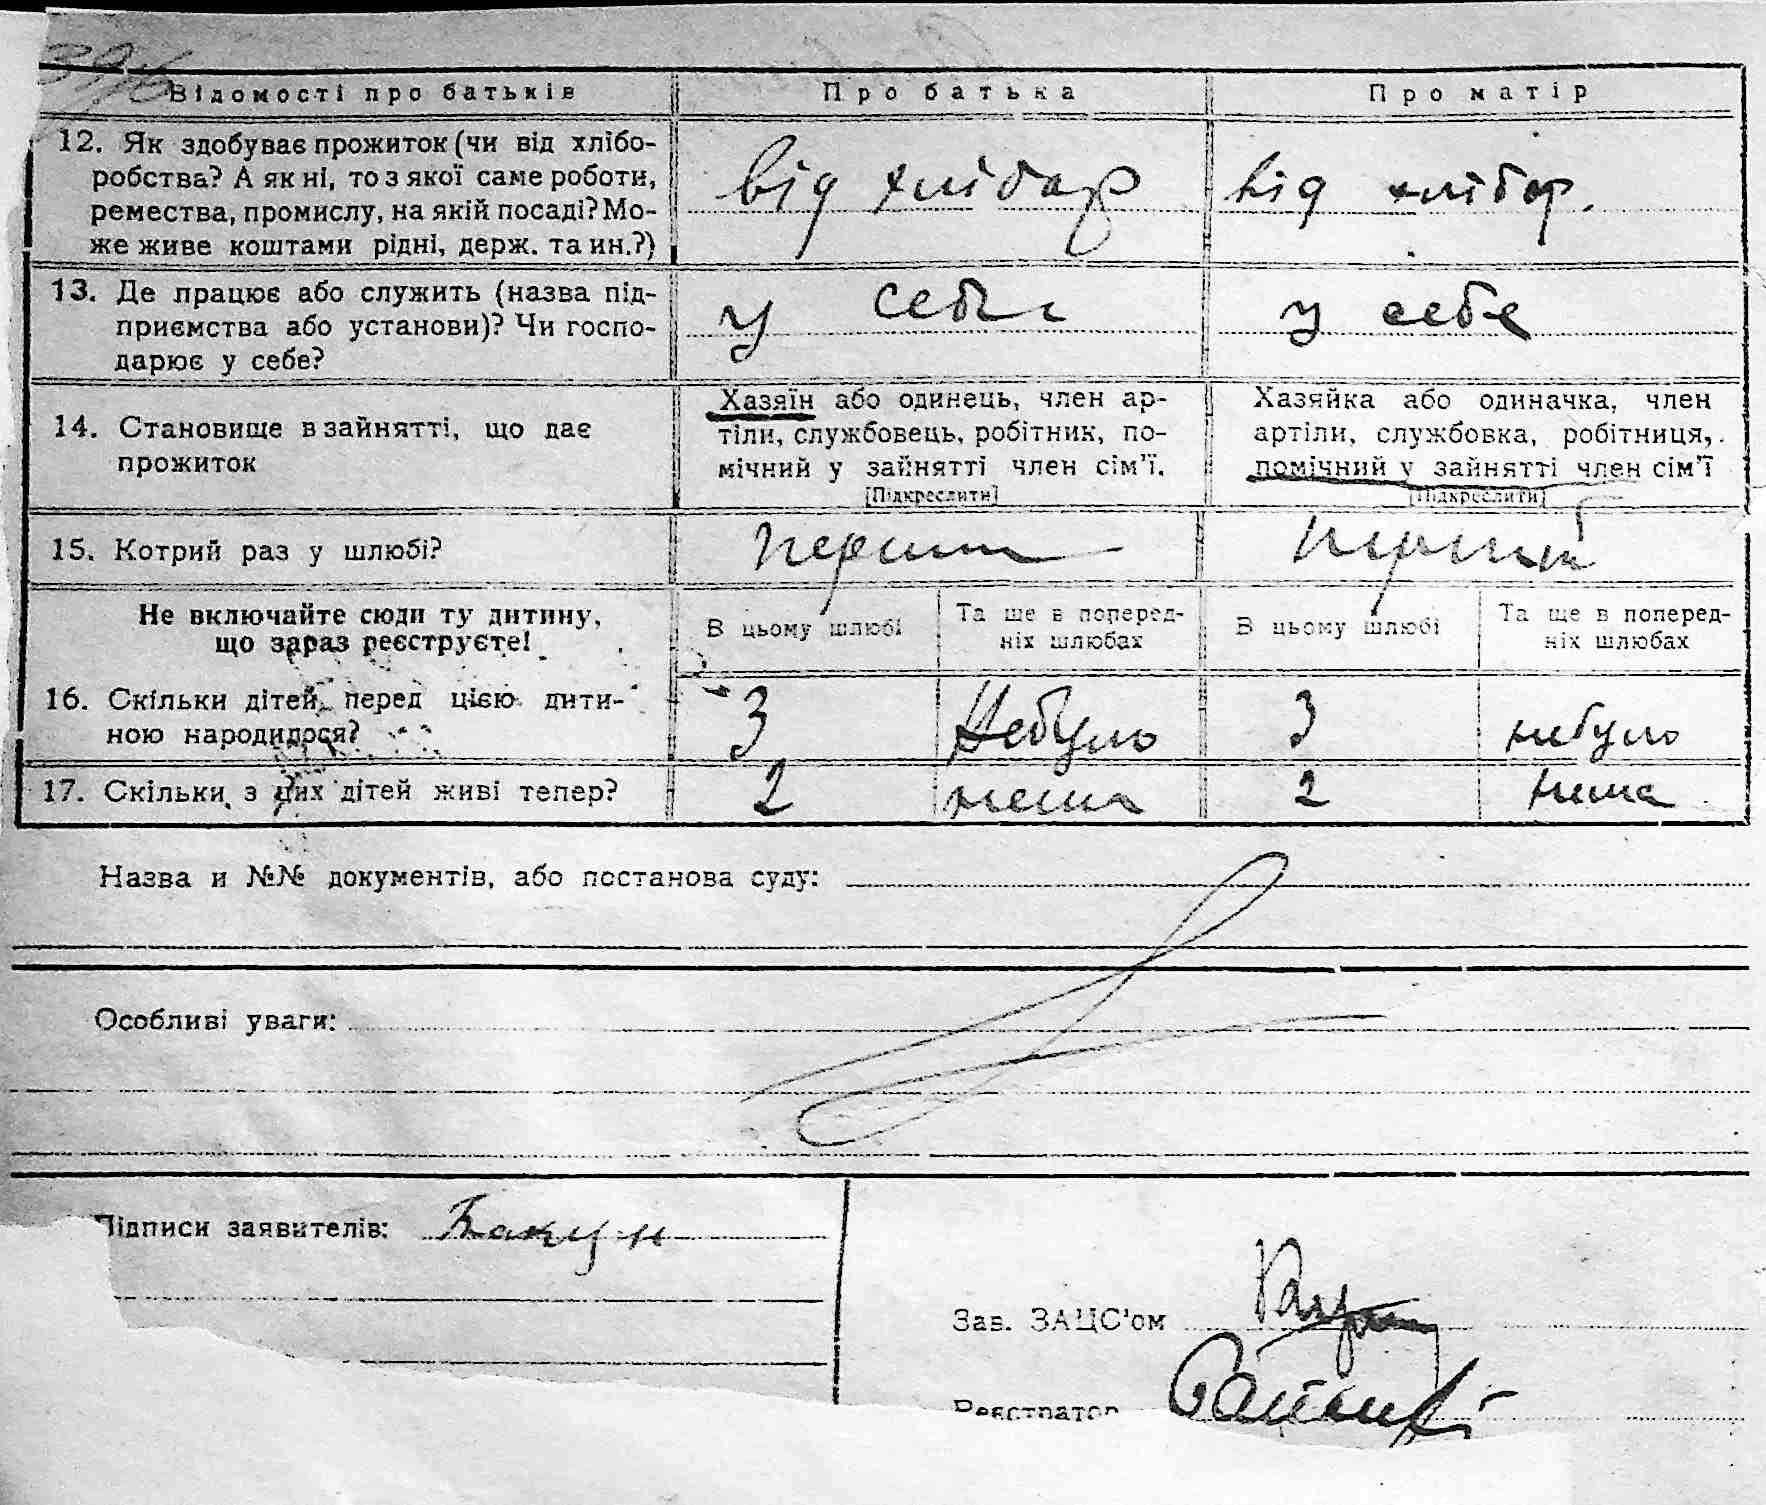 Відомості про батьків Про батька Про матір
12. Як здобуває прожиток (чи від хлібо-
робства? А як ні, то з якої саме роботи,
ремества, промислу, на якій посаді? Мо-
же живе коштами рідні, держ. та ин.?)
від хлібор від хлібор.
13. Де працює або служить (назва під-
приємства або установи)? Чи госпо-
дарює у себе?
у себе у себе
14. Становище в зайнятті, що дає
прожиток
Хазяїн або одинець, член ар-
тіли, службовець, робітник, по-
мічний у зайнятті член сім'ї.
[Підкреслити]
Хазяйка або одиначка, член
артіли, службовка, робітниця,
помічний у зайнятті член сім'ї
[Підкреслити]
15. Котрий раз у шлюбі?
Не включайте сюди ту дитину,
що зараз реєструєте!
В цьому шлюбі
Та ще в поперед-
ніх шлюбах
В цьому шлюбі
Та ще в поперед-
ніх шлюбах
16. Скільки дітей перед цією дити-
ною народилося?
3 Небуло 3 небуло
17. Скільки з цих дітей живі тепер?
2 нема 2 нема
Назва и №№ документів, або постанова суду:
Особливі уваги:
Підписи заявителів: Бакун
Зав. ЗАЦС'ом
Реєстратор